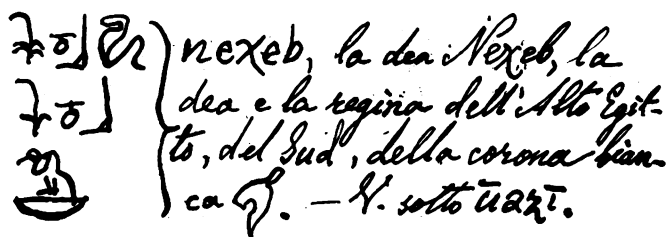 nexeb, la dea Nexeb, la
dea e la regina dell'Alto Egit-
to, del Sud, della corona bian-
ca . — V. sotto ūazī.